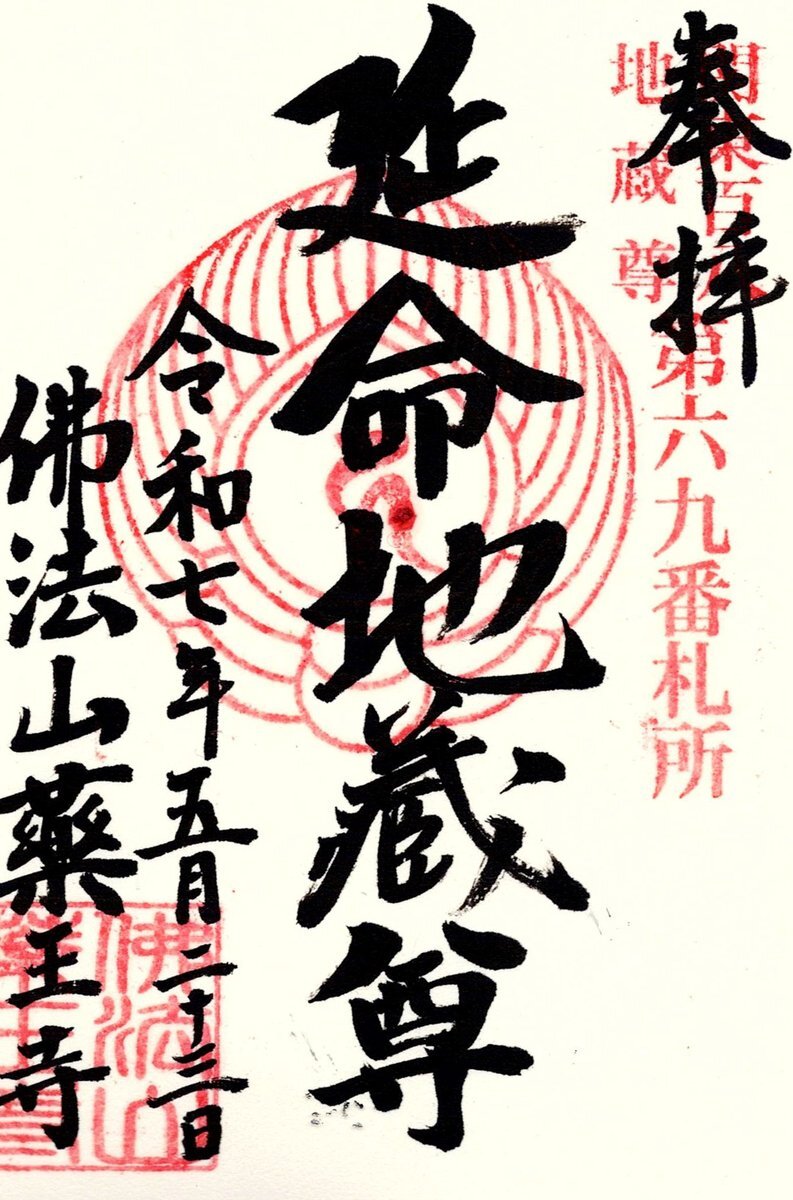 奉拝
関東百八
地蔵尊
第六九番札所
延命地蔵尊
令和七年五月二十三日
佛法山薬王寺
佛法山